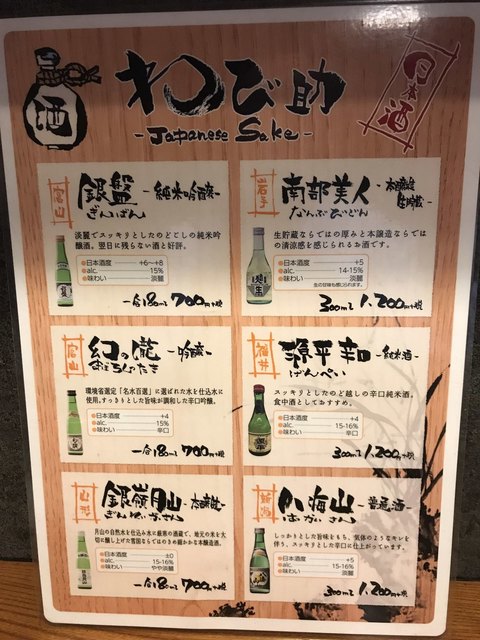 酒
わび助
- Japanese Sake -
日本酒
富山
銀盤 - 純米吟醸 -
ぎんばん
淡麗でスッキリとしたのどごしの純米吟
醸酒。翌日に残らない酒と好評。
●日本酒度 +6～+8
●alc. 15%
●味わい 淡麗
一合180ml 700円+税
岩手
南部美人 - 本醸造生貯蔵 -
なんぶびじん
生貯蔵ならではの厚みと本醸造ならで
はの清涼感を感じられるお酒です。
●日本酒度 +5
●alc. 14-15%
●味わい 淡麗
生の甘味も感じられます。
300ml 1,200円+税
富山
幻の瀧 - 吟醸 -
まぼろしのたき
環境省選定「名水百選」に選ばれた水を仕込み水
に使用。すっきりとした旨味が調和した辛口吟醸。
●日本酒度 +4
●alc. 15%
●味わい 辛口
一合180ml 700円+税
福井
源平 辛口 - 純米酒 -
げんぺい
スッキリとしたのど越しの辛口純米酒。
食中酒としておすすめ。
●日本酒度 +4
●alc. 15-16%
●味わい 辛口
300ml 1,200円+税
山形
銀嶺月山 - 本醸造 -
ぎんれいがっさん
月山の自然水を仕込み水に厳寒の酒蔵で、地元の米を大
切に醸し上げた雪国ならではのきめ細かかな本醸造酒。
●日本酒度 ±0
●alc. 15-16%
●味わい やや淡麗
一合180ml 700円+税
新潟
八海山 - 普通酒 -
はっかいさん
しっかりとした旨味をもち、気体のようなキレを
伴う、スッキリとした辛口に仕上がっています。
●日本酒度 +5
●alc. 15-16%
●味わい 淡麗
300ml 1,200円+税